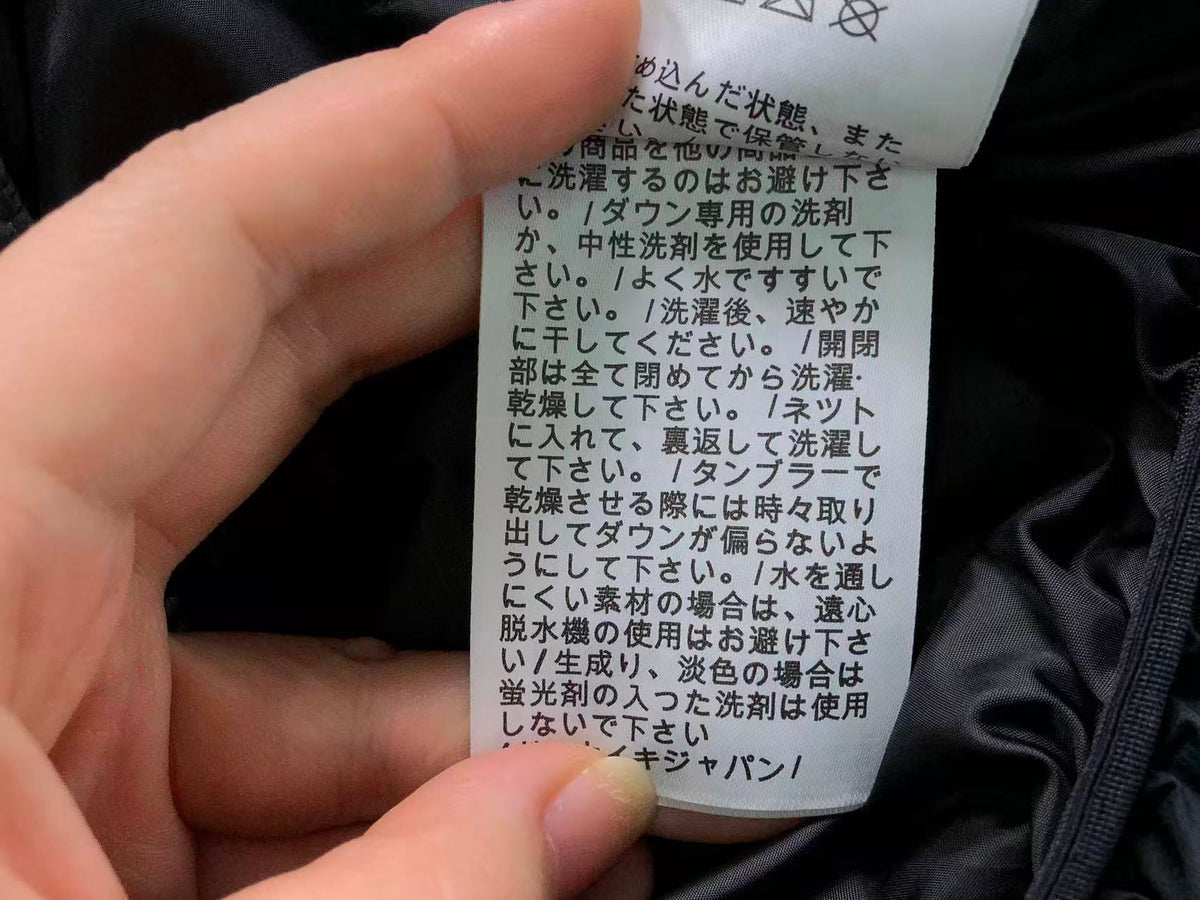 め込んだ状態、また
た状態で保管しない
い
商品を他の商品
に洗濯するのはお避け下さ
い。/ダウン専用の洗剤
か、中性洗剤を使用して下
さい。/よく水ですすいで
下さい。/洗濯後、速やか
に干してください。/開閉
部は全て閉めてから洗濯·
乾燥して下さい。/ネツト
に入れて、裏返して洗濯し
て下さい。/タンブラーで
乾燥させる際には時々取り
出してダウンが偏らないよ
うにして下さい。/水を通し
にくい素材の場合は、遠心
脱水機の使用はお避け下さ
い/生成り、淡色の場合は
蛍光剤の入つた洗剤は使用
しないで下さい
イキジャパン/